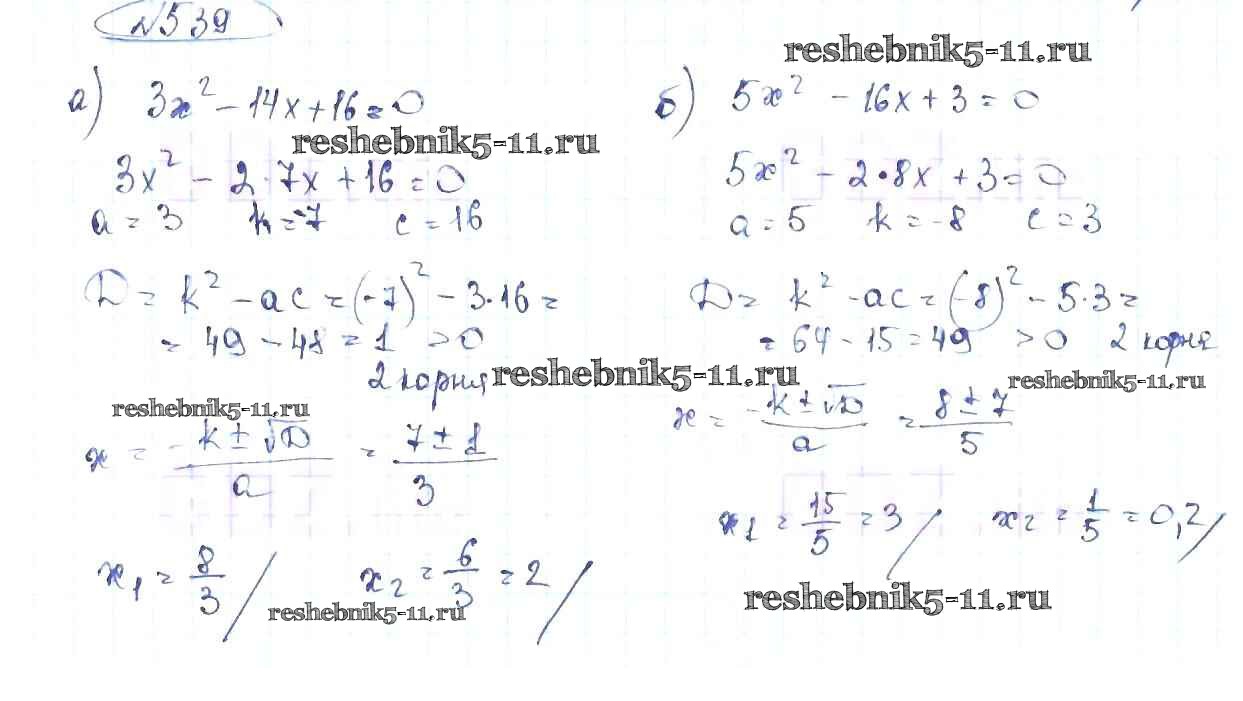 №539
reshebnik5-11.ru
а) 3x² - 14x + 16 = 0
reshebnik5-11.ru
3x² - 2·7x + 16 = 0
a = 3 k = -7 c = 16
D = k² - ac = (-7)² - 3·16 =
= 49 - 48 = 1 > 0
2 корня
reshebnik5-11.ru
reshebnik5-11.ru
x = (-k ± √D)/a = (7 ± 1)/3
x₁ = 8/3 / x₂ = 6/3 = 2 /
reshebnik5-11.ru
б) 5x² - 16x + 3 = 0
5x² - 2·8x + 3 = 0
a = 5 k = -8 c = 3
D = k² - ac = (-8)² - 5·3 =
= 64 - 15 = 49 > 0 2 корня
reshebnik5-11.ru
x = (-k ± √D)/a = (8 ± 7)/5
x₁ = 15/5 = 3 / x₂ = 1/5 = 0,2 /
reshebnik5-11.ru